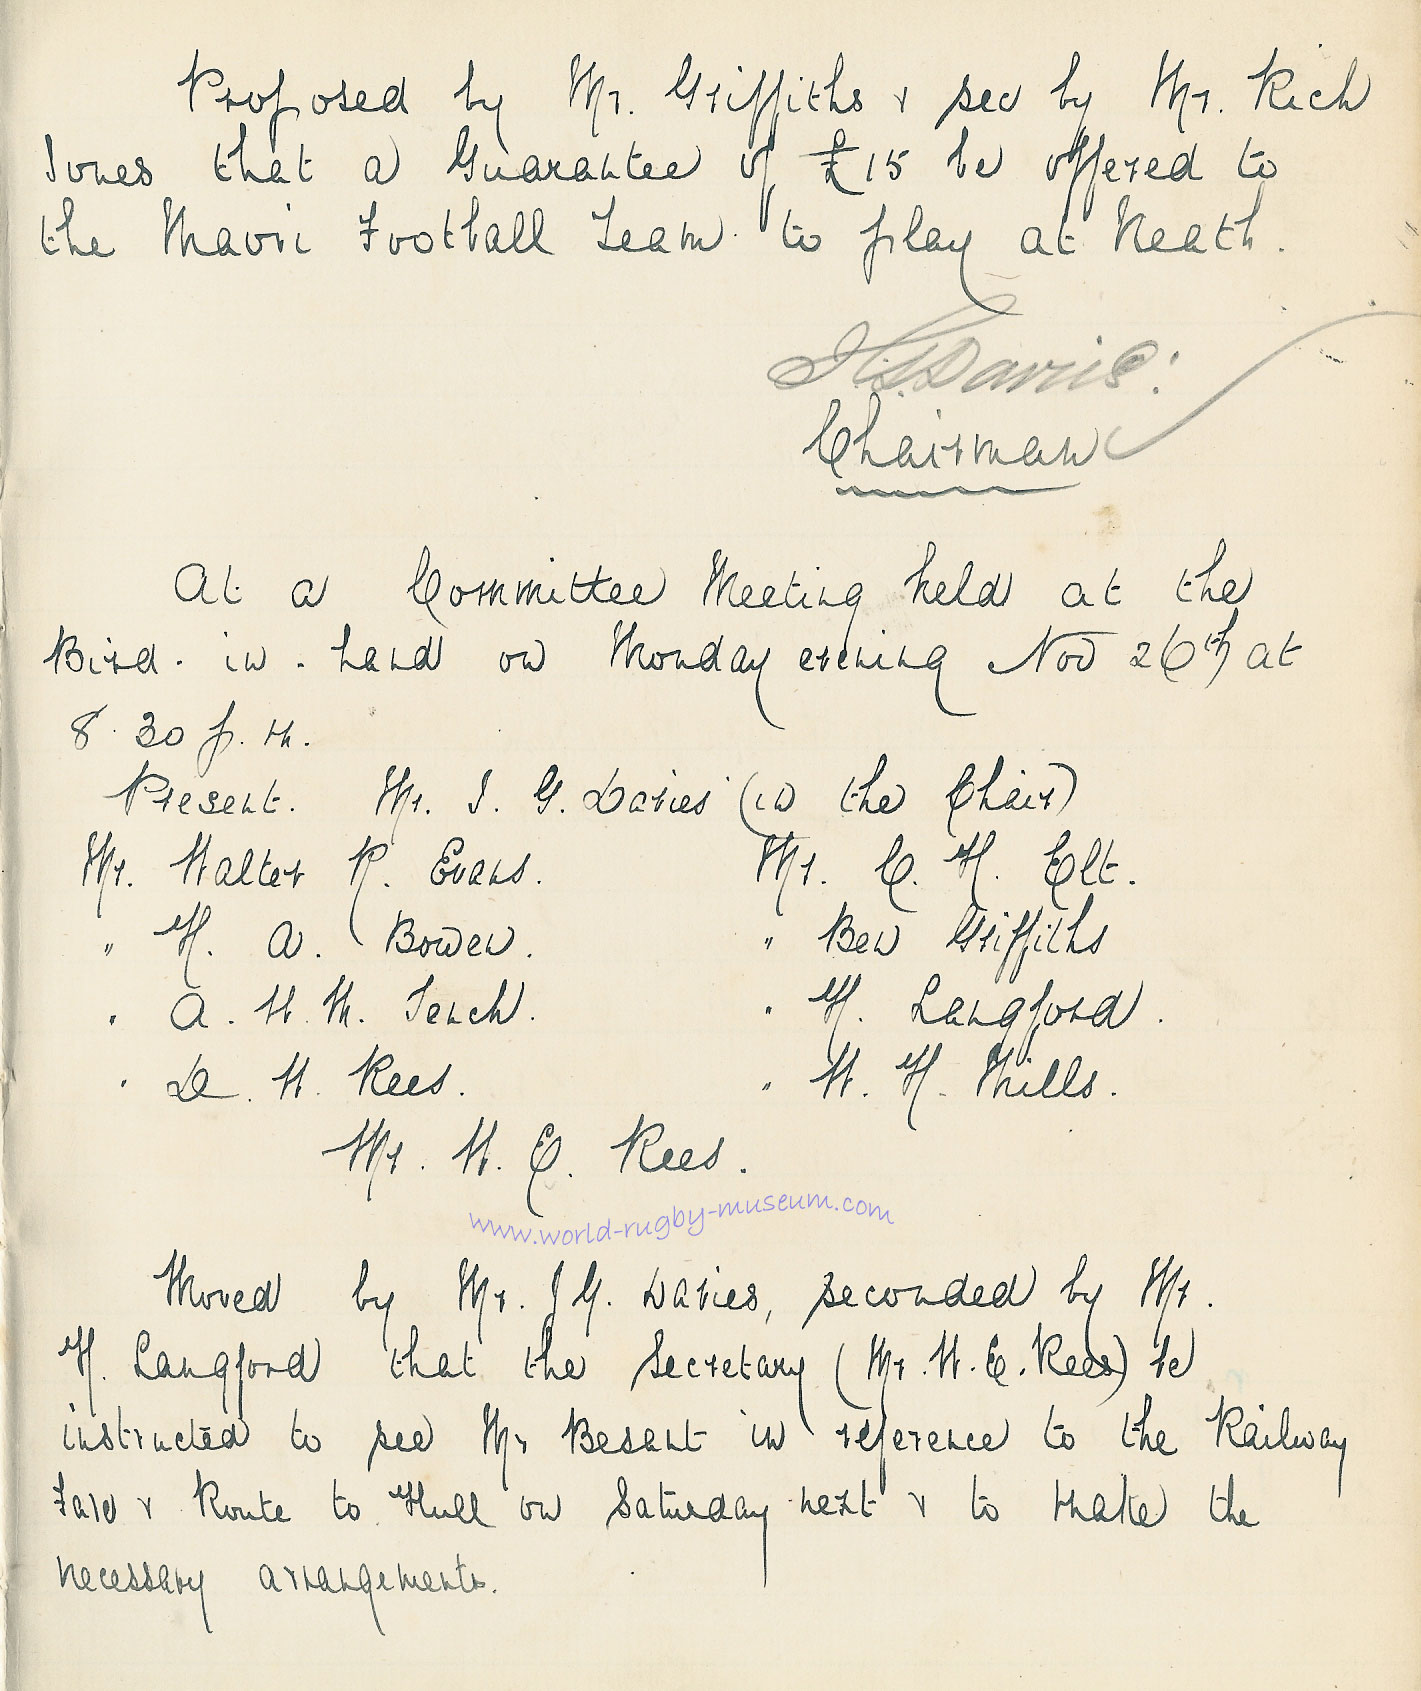 Proposed by Mr. Griffiths & sec by Mr. Rich
Jones that a Guarantee of £15 be offered to
the Maori Football Team to play at Neath.
J. G. Davies
Chairman
At a Committee Meeting held at the
Bird-in-hand on Monday evening Nov 26th at
8.30 p.m.
Present. Mr. J. G. Davies (in the Chair)
Mr. Walter R. Evans. Mr. C. H. Elt.
" H. A. Bowen. " Ben Griffiths
" A. W. M. Tench. " H. Langford.
" D. W. Rees. " W. H. Mills.
Mr. W. E. Rees.
www.world-rugby-museum.com
Moved by Mr. J G. Davies, seconded by Mr.
H. Langford that the Secretary (Mr. W. E. Rees) be
instructed to see Mr Besant in reference to the Railway
Fare & Route to Hull on Saturday next & to make the
necessary arrangements.